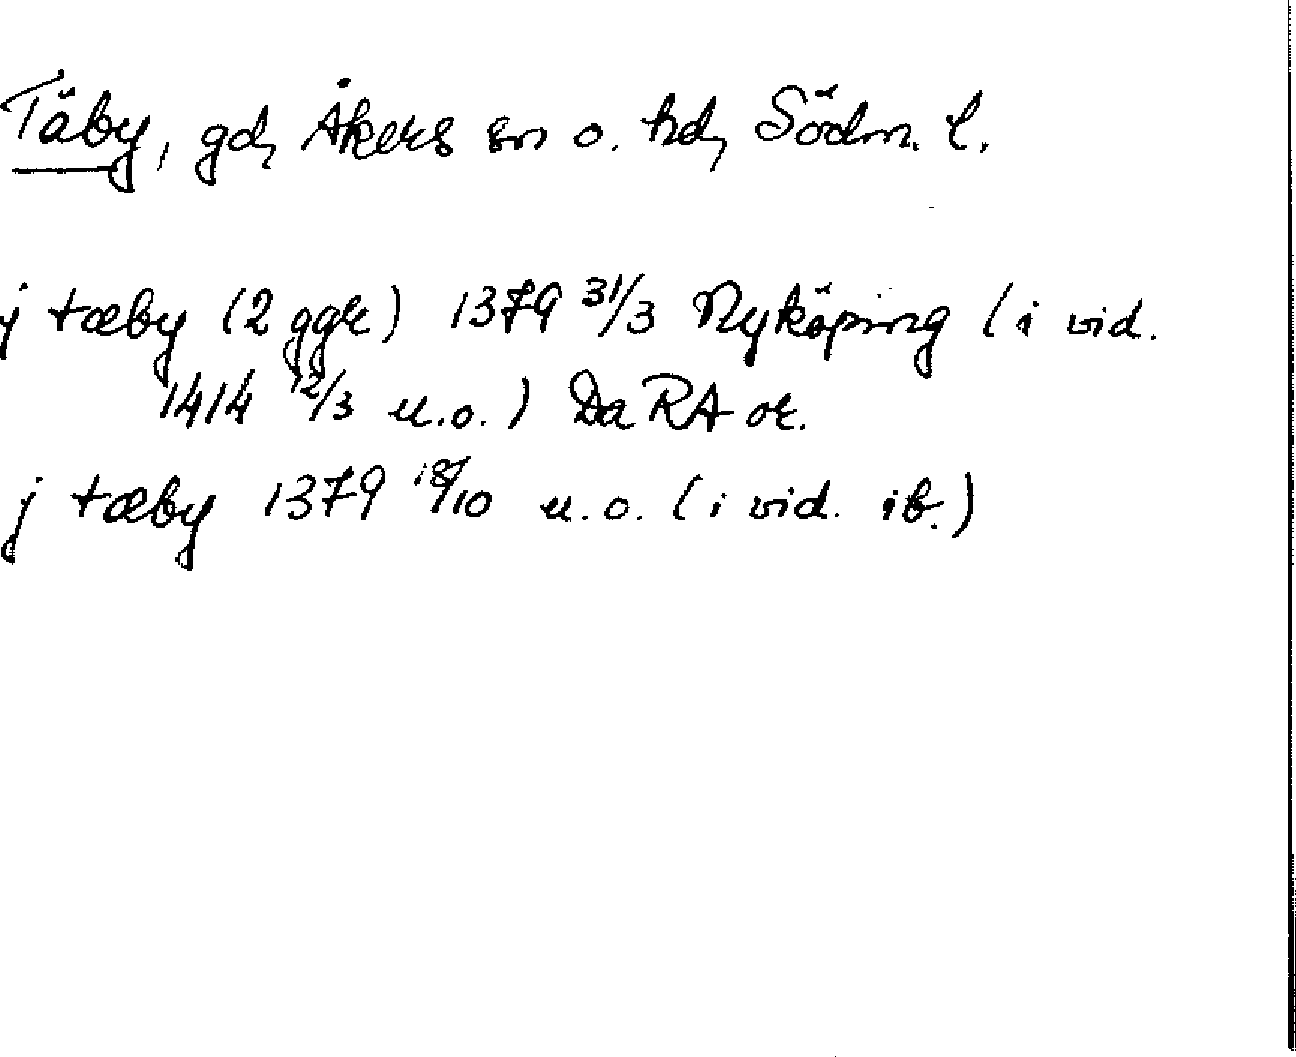 Täby, gd, Åkers sn o. hd, Södm. l.
j tæby (2 ggr) 1379 31/3 Nyköping (i vid.
1414 12/3 u.o.) Da RA or.
j tæby 1379 18/10 u.o. (i vid. ib.)